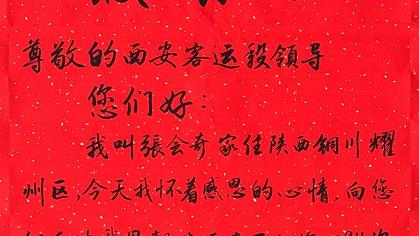 尊敬的西安客运段领导
您们好：
我叫張会奇家住陕西铜川耀
州区，今天我怀着感恩的心情，向您